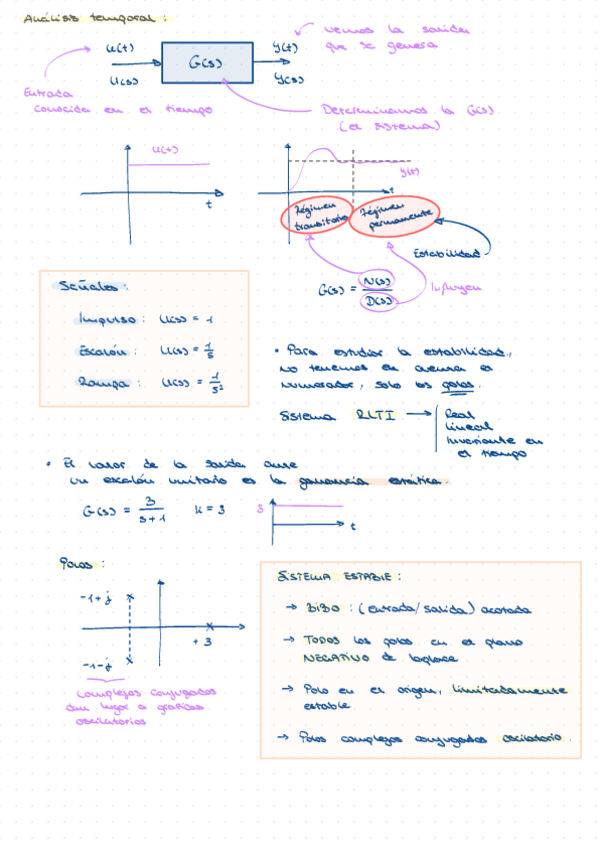 Análisis temporal :
vemos la salida
que se genera
u(t)
U(s)
G(s)
y(t)
Y(s)
Entrada
conocida en el tiempo
Determinamos la G(s)
(el sistema)
u(t)
t
y(t)
t
Régimen
transitorio
Régimen
permanente
Estabilidad
G(s) = N(s)/D(s)
Influyen
Señales:
Impulso : U(s) = 1
Escalón : U(s) = 1/s
Rampa : U(s) = 1/s²
• Para estudiar la estabilidad,
no tenemos en cuenta el
numerador, solo los polos.
Sistema RLTI →
Real
Lineal
Invariante en
el tiempo
• El valor de la salida ante
un escalón unitario es la ganancia estática.
G(s) = 3/(s+1) k = 3
3
t
Polos :
-1+j
+3
-1-j
Complejos conjugados
dan lugar a gráficas
oscilatorios
SISTEMA ESTABLE :
→ BIBO : (entrada/salida) acotada
→ TODOS los polos en el plano
NEGATIVO de laplace
→ Polo en el origen, limitadamente
estable
→ Polos complejos conjugados oscilatorio.